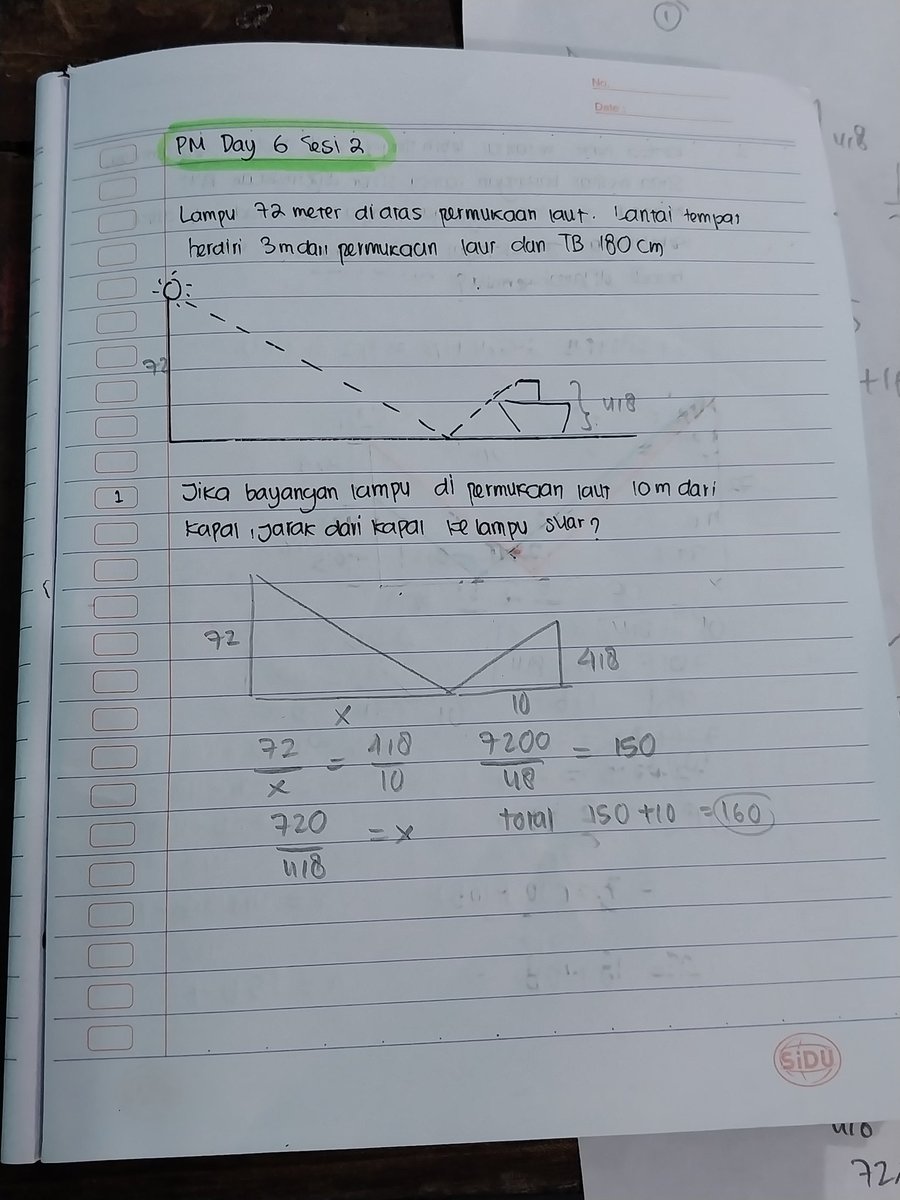 ①
No.
Date :
PM Day 6 Sesi 2
Lampu 72 meter di atas permukaan laut. Lantai tempat
berdiri 3m dari permukaan laut dan TB 180 cm
72
4,8
1 Jika bayangan lampu di permukaan laut 10 m dari
kapal, jarak dari kapal ke lampu suar?
72
4,8
x 10
72/x = 4,8/10 7200/48 = 150
720/4,8 = x total 150 + 10 = 160
SiDU
4,8
+10
4,8
72